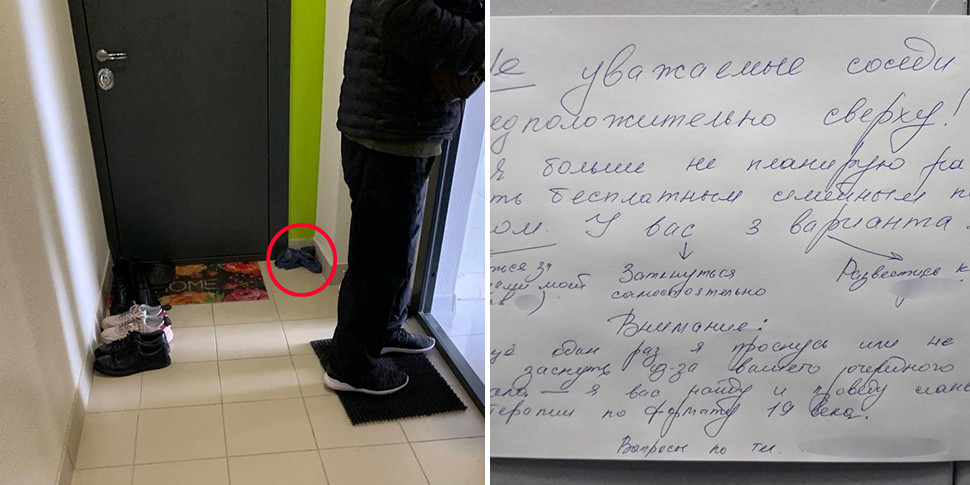 OME
Не уважаемые соседи
едположительно сверху!
я больше не планирую ра
ть бесплатным семейным п
ом. У вас 3 варианта.
ться за Заткнуться Развестись к
самостоятельно
Внимание:
щё один раз я проснусь или не
заснуть из-за вашего очередного
я вас найду и проведу сеан
терапии по формату 19 века.
Вопросы по тел.